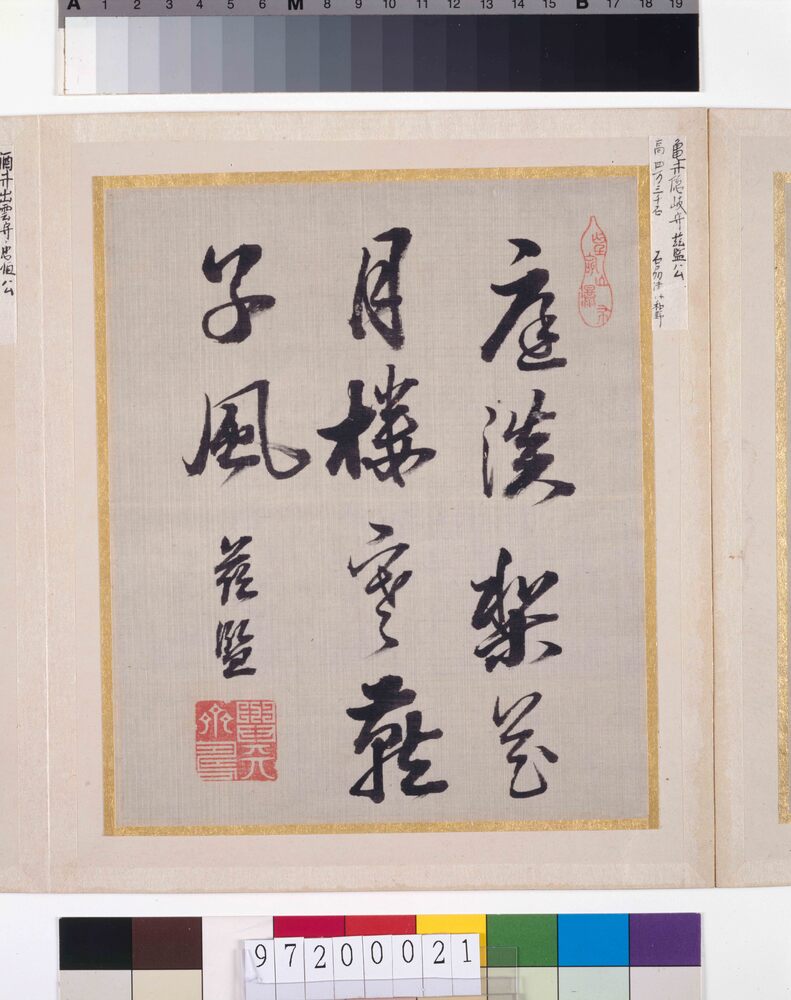 A 1 2 3 4 5 6 M 8 9 10 11 12 13 14 15 B 17 18 19
亀井隠岐守茲監公
高四万三千石
庭淡梨花
月楼寒燕
子風
茲監
酒井出雲守忠恒公
97200021